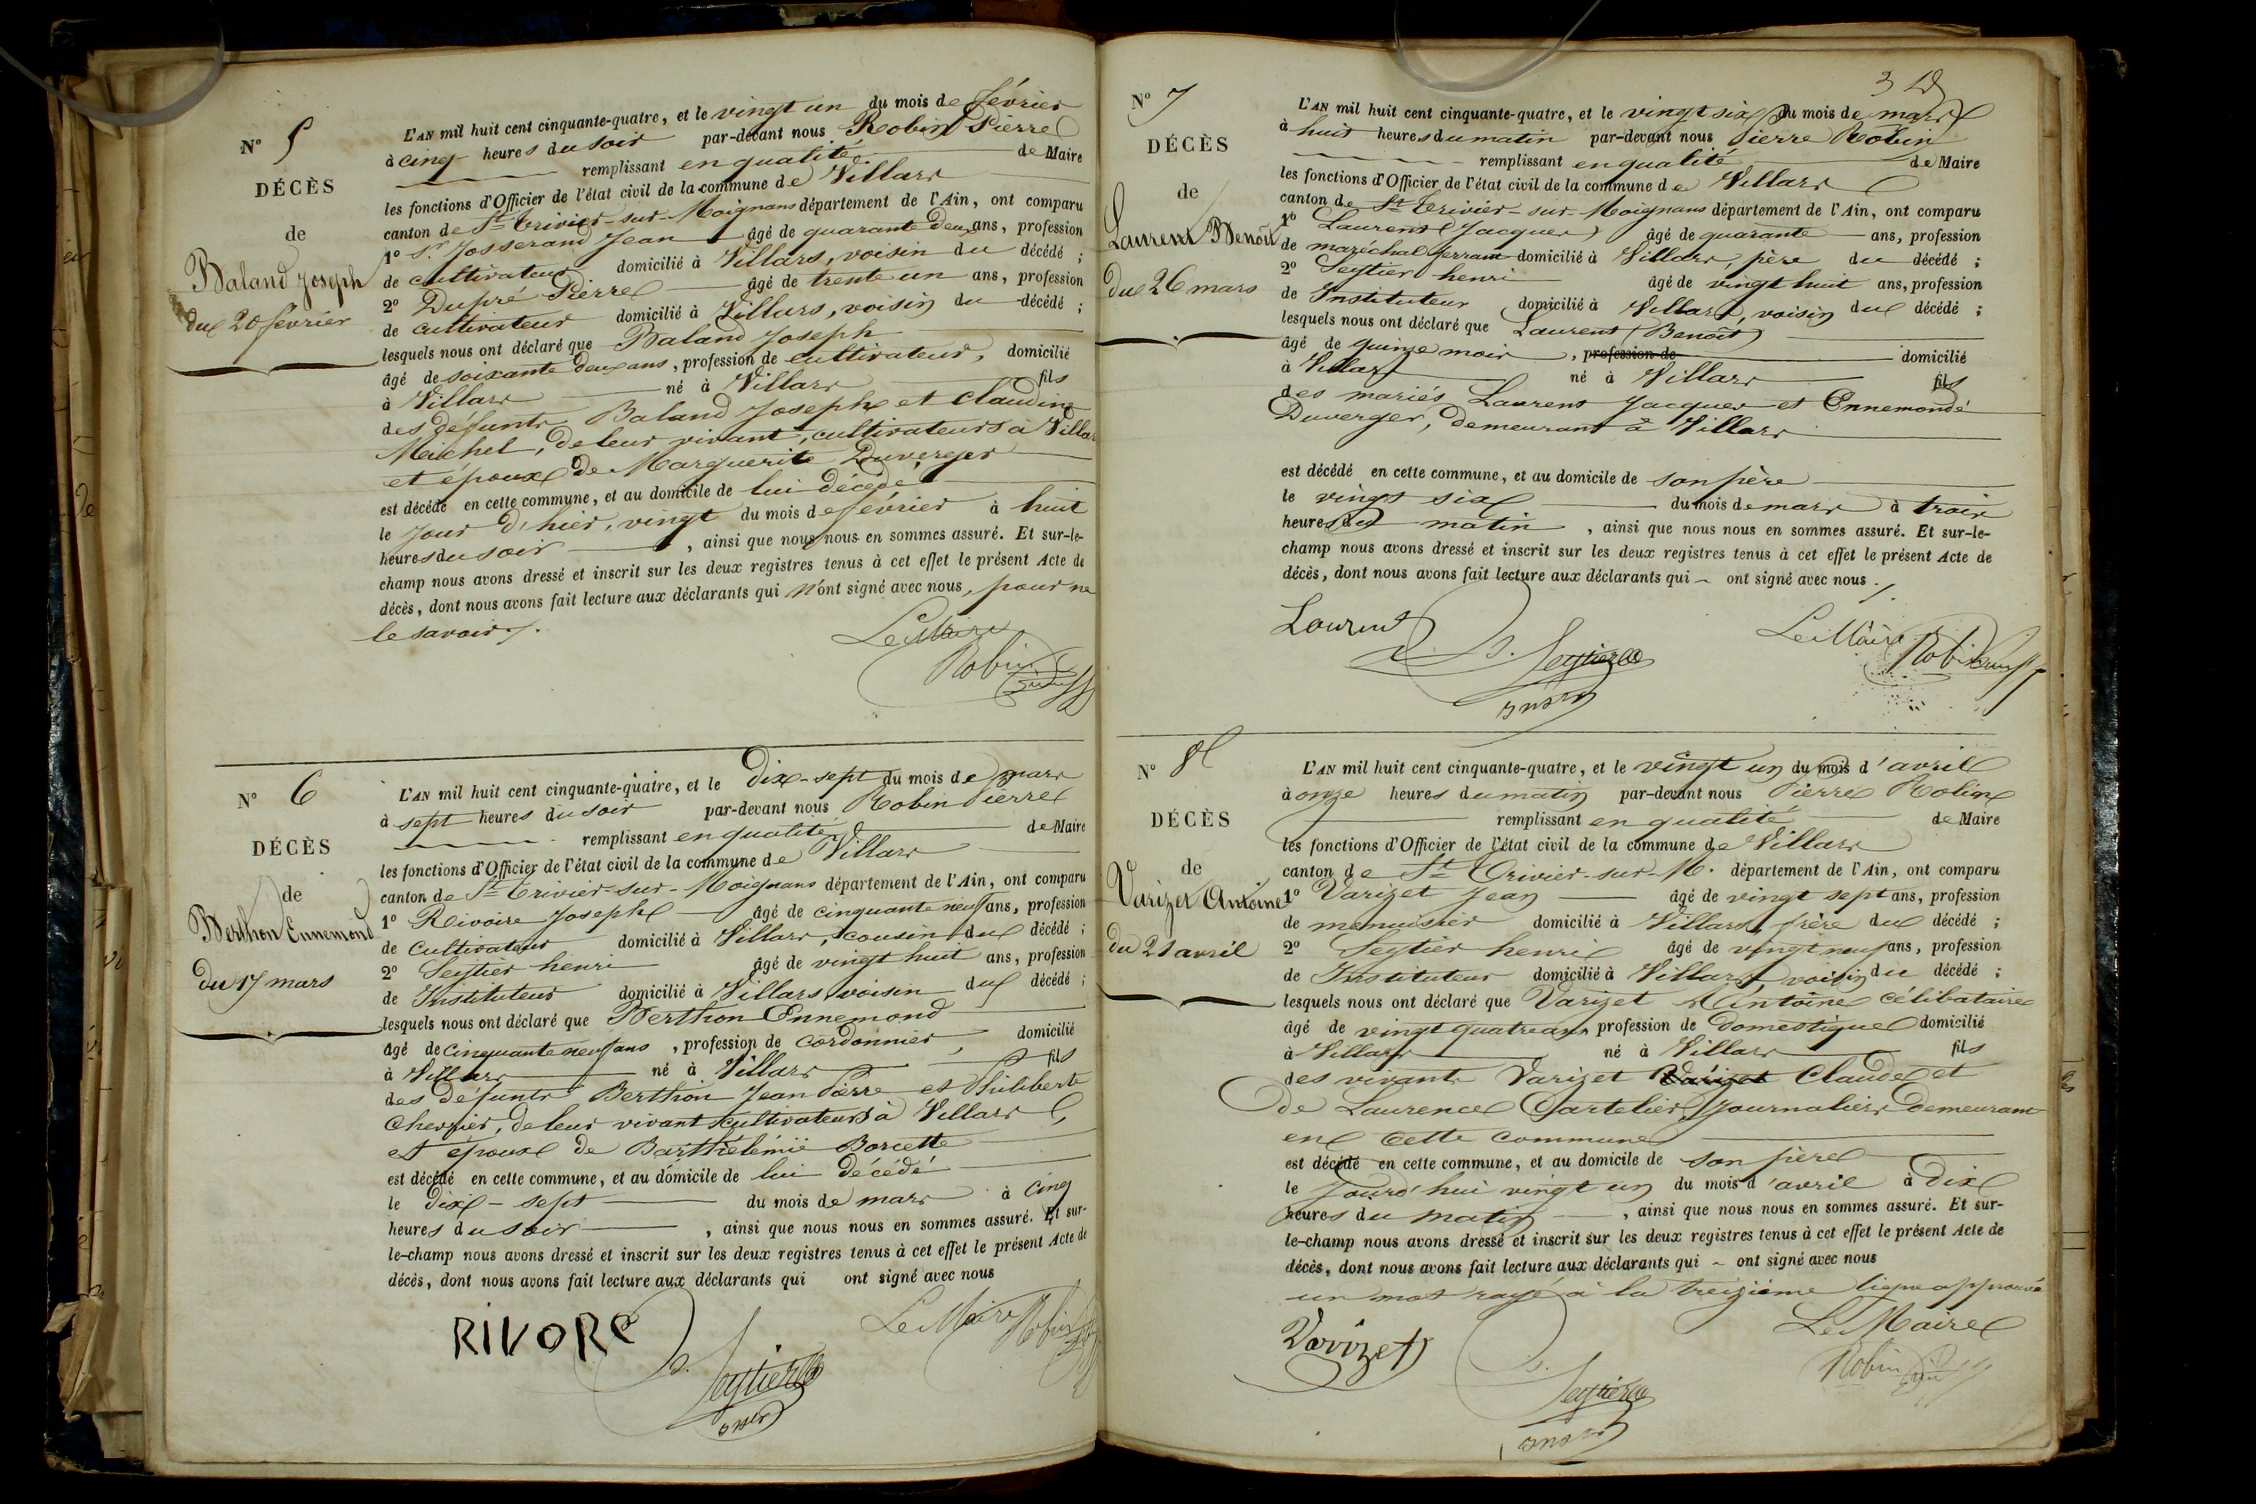 Nº 5
DÉCÈS
de
Baland Joseph
du 20 février
L'AN mil huit cent cinquante-quatre, et le vingt un du mois de février
à cinq heures du soir par-devant nous Robin Pierre
remplissant en qualité de Maire
les fonctions d'Officier de l'état civil de la commune de Villars
canton de St Trivier-sur-Moignans département de l'Ain, ont comparu
1º Sr Josserand Jean âgé de quarante deux ans, profession
de cultivateur domicilié à Villars, voisin du décédé ;
2º Dupré Pierre âgé de trente un ans, profession
de cultivateur domicilié à Villars, voisin du décédé ;
lesquels nous ont déclaré que Baland Joseph
âgé de soixante deux ans, profession de cultivateur, domicilié
à Villars né à Villars fils
des défunts Baland Joseph et Claudine
Michel, de leur vivant, cultivateurs à Villars
et époux de Marguerite Duverger
est décédé en cette commune, et au domicile de lui décédé
le jour d'hier, vingt du mois de février à huit
heures du soir, ainsi que nous nous en sommes assuré. Et sur-le-
champ nous avons dressé et inscrit sur les deux registres tenus à cet effet le présent Acte de
décès, dont nous avons fait lecture aux déclarants qui n'ont signé avec nous, pour ne
le savoir.
Le Maire
Robin
Nº 6
DÉCÈS
de
Berthon Ennemond
du 17 mars
L'AN mil huit cent cinquante-quatre, et le dix-sept du mois de mars
à sept heures du soir par-devant nous Robin Pierre
remplissant en qualité de Maire
les fonctions d'Officier de l'état civil de la commune de Villars
canton de St Trivier-sur-Moignans département de l'Ain, ont comparu
1º Rivoire Joseph âgé de cinquante neuf ans, profession
de cultivateur domicilié à Villars, cousin du décédé ;
2º Seytier henri âgé de vingt huit ans, profession
de Instituteur domicilié à Villars voisin du décédé ;
lesquels nous ont déclaré que Berthon Ennemond
âgé de cinquante neuf ans, profession de cordonnier, domicilié
à Villars né à Villars fils
des défunts Berthon Jean Pierre et Philiberte
Chervier, de leur vivant cultivateurs à Villars,
et époux de Barthélémie Borcette
est décédé en cette commune, et au domicile de lui décédé
le dix-sept du mois de mars à cinq
heures du soir, ainsi que nous nous en sommes assuré. Et sur-
le-champ nous avons dressé et inscrit sur les deux registres tenus à cet effet le présent Acte de
décès, dont nous avons fait lecture aux déclarants qui ont signé avec nous
RIVORE
Seytier
Le Maire Robin
3
Nº 7
DÉCÈS
de
Laurent Benoît
du 26 mars
L'AN mil huit cent cinquante-quatre, et le vingt six du mois de mars
à huit heures du matin par-devant nous Pierre Robin
remplissant en qualité de Maire
les fonctions d'Officier de l'état civil de la commune de Villars
canton de St Trivier-sur-Moignans département de l'Ain, ont comparu
1º Laurent Jacques âgé de quarante ans, profession
de maréchal ferrant domicilié à Villars, père du décédé ;
2º Seytier henri âgé de vingt huit ans, profession
de Instituteur domicilié à Villars, voisin du décédé ;
lesquels nous ont déclaré que Laurent Benoît
âgé de quinze mois, profession de domicilié
à Villars né à Villars fils
des mariés Laurent Jacques et Ennemonde
Duverger, demeurant à Villars
est décédé en cette commune, et au domicile de son père
le vingt six du mois de mars à trois
heures du matin, ainsi que nous nous en sommes assuré. Et sur-le-
champ nous avons dressé et inscrit sur les deux registres tenus à cet effet le présent Acte de
décès, dont nous avons fait lecture aux déclarants qui ~ ont signé avec nous.
Laurent
Seytier
Le Maire Robin
Nº 8
DÉCÈS
de
Varizet Antoine
du 21 avril
L'AN mil huit cent cinquante-quatre, et le vingt un du mois d'avril
à onze heures du matin par-devant nous Pierre Robin
remplissant en qualité de Maire
les fonctions d'Officier de l'état civil de la commune de Villars
canton de St Trivier-sur-M. département de l'Ain, ont comparu
1º Varizet Jean âgé de vingt sept ans, profession
de menuisier domicilié à Villars, frère du décédé ;
2º Seytier henri âgé de vingt neuf ans, profession
de Instituteur domicilié à Villars, voisin du décédé ;
lesquels nous ont déclaré que Varizet Antoine célibataire
âgé de vingt quatre ans, profession de Domestique domicilié
à Villars né à Villars fils
des vivants Varizet Varizet Claude et
de Laurence Cartelier, journaliers demeurant
en cette commune
est décédé en cette commune, et au domicile de son père
le jourd'hui vingt un du mois d'avril à dix
heures du matin, ainsi que nous nous en sommes assuré. Et sur-
le-champ nous avons dressé et inscrit sur les deux registres tenus à cet effet le présent Acte de
décès, dont nous avons fait lecture aux déclarants qui ~ ont signé avec nous
un mot rayé à la treizième ligne approuvé
Le Maire
Varizet
Seytier
Robin